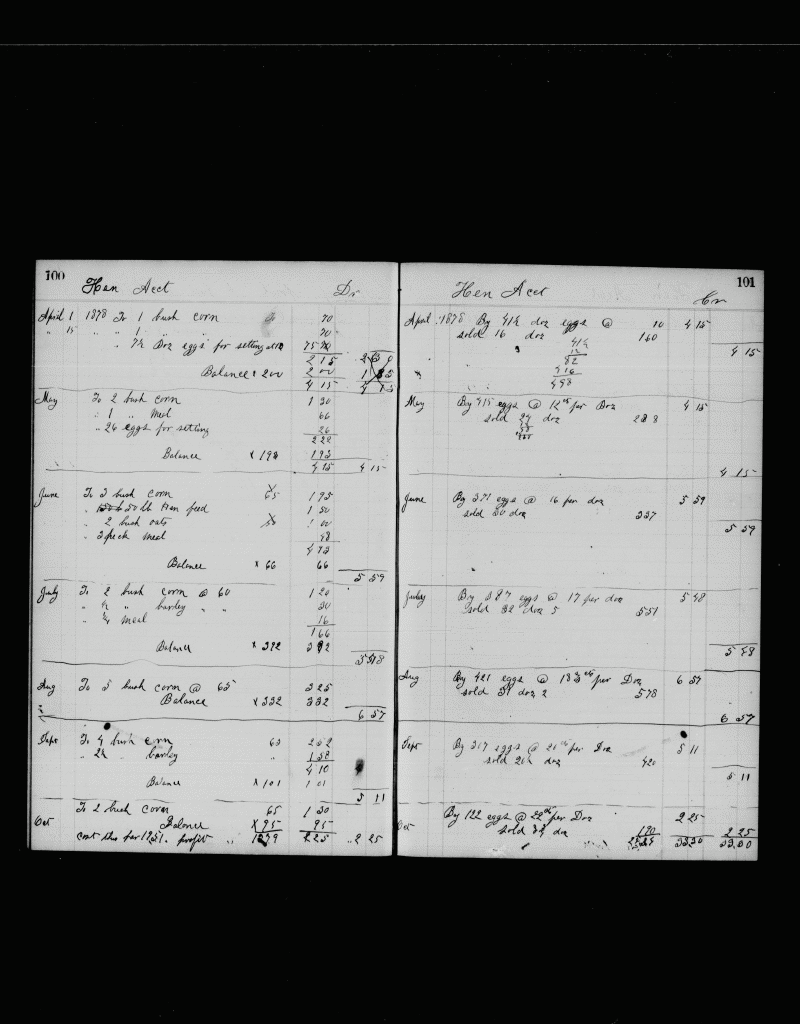 100
Hen Acct Dr
April 1 1878 To 1 bush corn 70
" 15 " " 1 " " 70
" 7½ Doz eggs for setting 75
2 15
Balance 2 00 2 00
4 15
May To 2 bush corn 1 30
" 1 " Meal 66
" 26 eggs for setting 26
2 22
Balance x 193 193
4 15 4 15
June To 3 bush corn 65 1 95
50 lb Bran feed 1 50
" 2 bush oats 1 00
" 3 peck meal 48
4 93
Balance x 66 66
5 59
July To 2 bush corn @ 60 1 20
" ½ " barley " " 30
" ¼ meal 16
1 66
Balance x 392 3 92
5 48
Aug To 5 bush corn @ 65 3 25
Balance x 332 332
6 57
Sept To 4 bush corn 63 2 52
" barley " 1 58
4 10
Balance x 101 1 01
5 11
To 2 bush corn 65 1 30
Oct Balance x 95 95
cost this far profit 2 25 " 2 25
101
Hen Acct Cr
April 1878 By 41½ doz eggs @ 10 4 15
sold 16 doz 160
41½
12
82
416
498
4 15
May By 415 eggs @ 12 cts per Doz 4 15
sold 24 doz 288
4 15
June By 371 eggs @ 16 per doz 5 59
sold doz 337
5 59
July By 387 eggs @ 17 per doz 5 48
sold 32 doz 5 551
5 48
Aug By 421 eggs @ per Doz 6 57
sold 31 doz 2 578
6 57
Sept By 307 eggs @ 20 cts per Doz 5 11
sold doz 420
5 11
By 122 eggs @ 22 cts per Doz 2 25
Oct sold doz 190 2 25
33 30 33 30